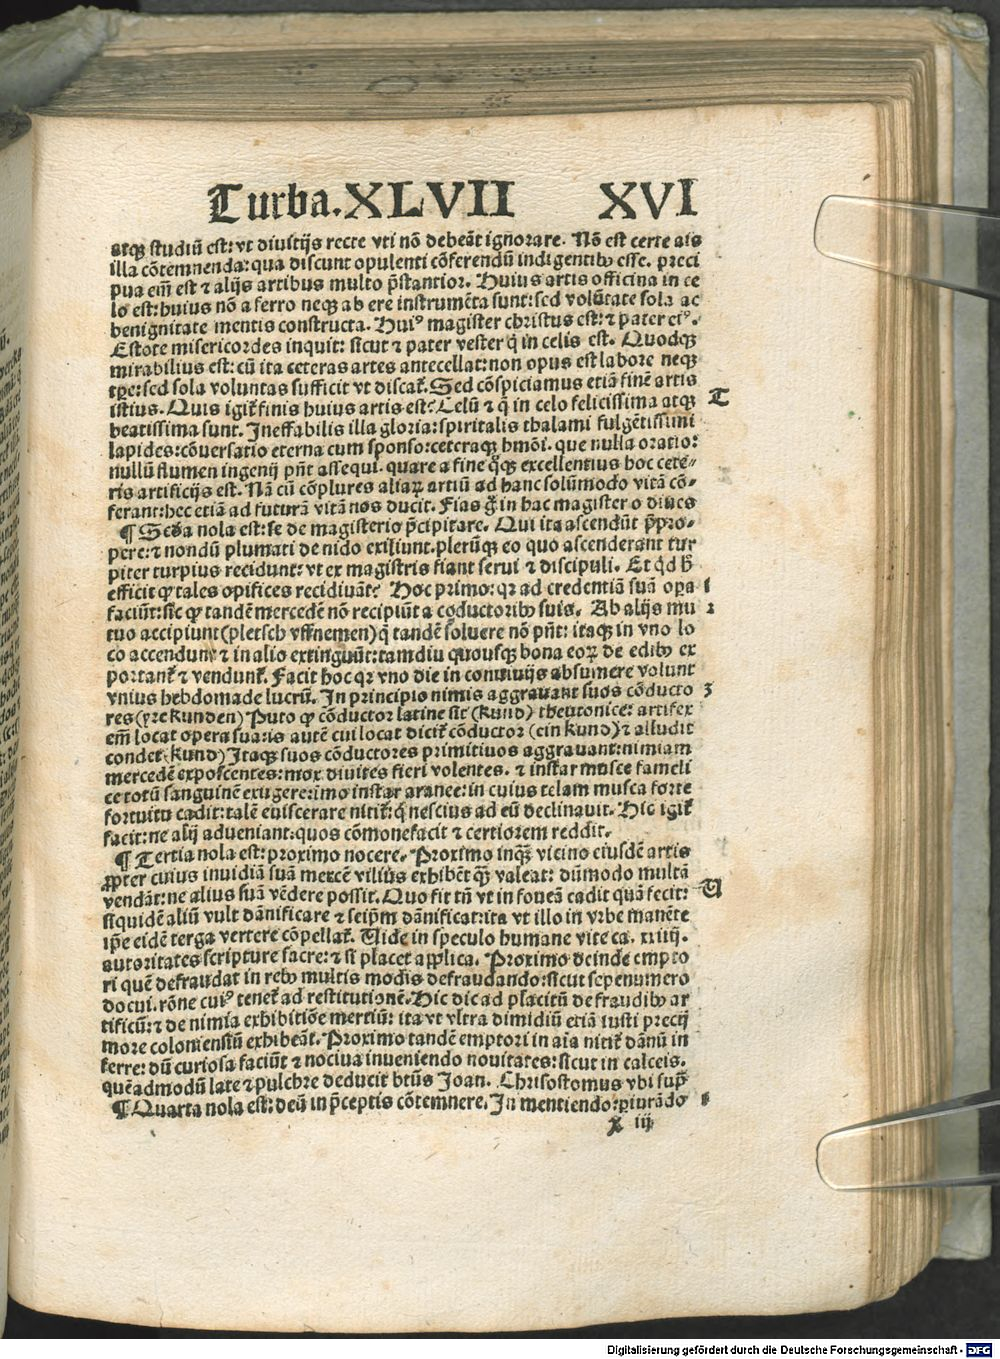 Turba. XLVII XVI
atqꝫ studiū est: vt diuitijs recte vti nō debeāt ignorare. Nō est certe ais
illa cōtemnenda: qua discunt opulenti cōferendū indigentibꝰ esse. preci
pua em̄ est ⁊ alijs artibus multo p̄stantior. Huius artis officina in ce
lo est: huius nō a ferro neqꝫ ab ere instrumēta sunt: sed volūtate sola ac
benignitate mentis constructa. Huiꝰ magister christus est: ⁊ pater eiꝰ.
Estote misericordes inquit: sicut ⁊ pater vester q̄ in celis est. Quodqꝫ
mirabilius est: cū ita ceteras artes antecellat: non opus est labore neqꝫ
tp̄e: sed sola voluntas sufficit vt discat᷑. Sed cōspiciamus etiā finē artis
istius. Quis igit᷑ finis huius artis est? Celū ⁊ q̄ in celo felicissima atqꝫ
T
beatissima sunt. Ineffabilis illa gloria: spiritalis thalami fulgētissimi
lapides: cōuersatio eterna cum sponso: ceteraqꝫ hmōi. que nulla oratio:
nullū flumen ingenij pn̄t assequi. quare a fine q̊qꝫ excellentius hoc cete-
ris artificijs est. Nā cū cōplures aliaꝝ artiū ad hanc solūmodo vitā cō-
ferant: hec etiā ad futurā vitā nos ducit. Fias g̊ in hac magister o diues
¶ Scda nola est: se de magisterio p̄cipitare. Qui ita ascendūt p̄pro-
pere: ⁊ nondū plumati de nido exiliunt. plerūqꝫ eo quo ascenderant tur
piter turpius recidunt: vt ex magistris fiant serui ⁊ discipuli. Et qd̓ h̓
efficit ꝙ tales opifices recidiuāt? Hoc primo: qꝛ ad credentiā suā oꝑa
1
faciūt: sic ꝙ tandē mercedē nō recipiūt a cōductoribꝰ suis. Ab alijs mu
2
tuo accipiunt (pletsch vffnemen) q̄ tandē soluere nō pn̄t: itaqꝫ in vno lo
co accendunt ⁊ in alio extinguūt: tamdiu quousqꝫ bona eoꝝ de edibꝰ ex
portant᷑ ⁊ vendunt᷑. Facit hoc qꝛ vno die in conuiuijs absumere volunt
vnius hebdomade lucrū. In principio nimis aggrauant suos cōducto
3
res (yre kunden) Puto ꝙ cōductor latine sit (kund) theutonice: artifex
em̄ locat opera sua: is autē cui locat dicit᷑ cōductor (ein kund) ⁊ alludit
condet (kund) Itaqꝫ suos cōductores primitiuos aggrauant: nimiam
mercedē exposcentes: mox diuites fieri volentes. ⁊ instar musce fameli
ce totū sanguinē exugere: imo instar aranee: in cuius telam musca forte
fortuitu cadit: talē euiscerare nitit᷑: q̄ nescius ad eū declinauit. Hic igit᷑
facit: ne alij adueniant: quos cōmonefacit ⁊ certiorem reddit.
¶ Tertia nola est: proximo nocere. Proximo inqꝫ vicino eiusdē artis
ꝓpter cuius inuidiā suā mercē vilius exhibēt qꝫ valeat: dūmodo multā
V
vendāt: ne alius suā vēdere possit. Quo fit tn̄ vt in foueā cadit quā fecit:
siquidē aliū vult dānificare ⁊ seip̄m dānificat: ita vt illo in vrbe manēte
ip̄e eidē terga vertere cōpellat᷑. Vide in speculo humane vite ca. xxiiij.
autoritates scripture sacre: ⁊ si placet applica. Proximo deinde empto
ri quē defraudat in rebꝰ multis modis defraudando: sicut sepenumero
docui. rōne cuiꝰ tenet᷑ ad restitutionē. Hic dic ad placitū de fraudibꝰ ar
tificū: ⁊ de nimia exhibitiōe mertiū: ita vt vltra dimidiū etiā iusti precij
more coloniensiū exhibeāt. Proximo tandē emptori in aīa nitit᷑ dānū in
ferre: dū curiosa faciūt ⁊ nociua inueniendo nouitates: sicut in calceis.
quēadmodū late ⁊ pulchre deducit btūs Joan. Chrisostomus vbi supͣ
¶ Quarta nola est: deū in p̄ceptis cōtemnere. In mentiendo: ꝑiurādo
1
X iij
Digitalisierung gefördert durch die Deutsche Forschungsgemeinschaft - DFG